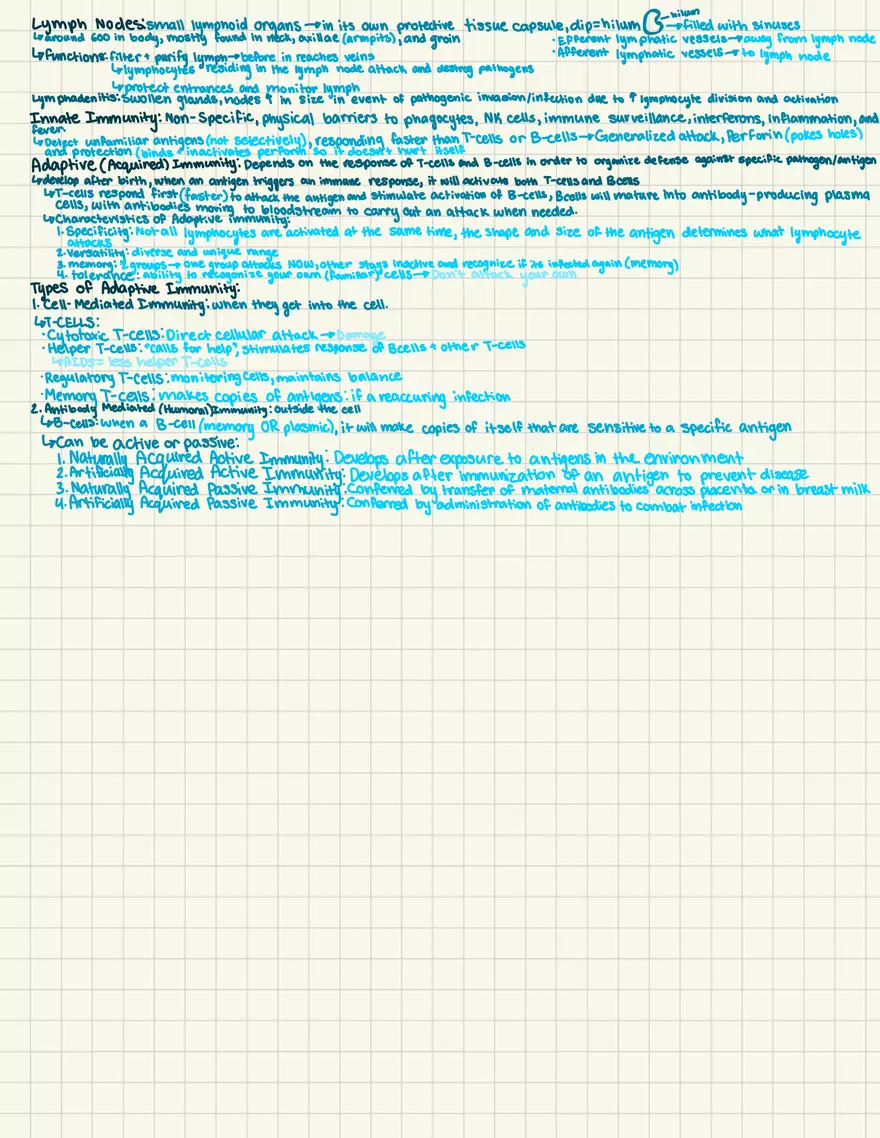 Lymph Nodes: small lymphoid organs → in its own protective tissue capsule, dip=hilum hilum → filled with sinuses
↳around 600 in body, mostly found in neck, axillae (armpits), and groin
• Efferent lymphatic vessels → away from lymph node
• Afferent lymphatic vessels → to lymph node
↳Functions: filter + purify lymph → before in reaches veins
↳lymphocytes residing in the lymph node attack and destroy pathogens
↳protect entrances and monitor lymph
Lymphadenitis: Swollen glands, nodes ↑ in size in event of pathogenic invasion/infection due to ↑ lymphocyte division and activation
Innate Immunity: Non-Specific, physical barriers to phagocytes, NK cells, immune surveillance, interferons, inflammation, and
fever
↳Detect unfamiliar antigens (not selectively), responding faster than T-cells or B-cells → Generalized attack, Perforin (pokes holes)
and protection (binds + inactivates perforin so it doesn't hurt itself
Adaptive (Acquired) Immunity: Depends on the response of T-cells and B-cells in order to organize defense against specific pathogen/antigen
↳develop after birth, when an antigen triggers an immune response, it will activate both T-cells and Bcells
↳T-cells respond first (faster) to attack the antigen and stimulate activation of B-cells, Bcells will mature into antibody-producing plasma
cells, with antibodies moving to bloodstream to carry out an attack when needed.
↳Characteristics of Adaptive immunity:
1. Specificity: Not all lymphocytes are activated at the same time, the shape and size of the antigen determines what lymphocyte
attacks
2. Versatility: diverse and unique range
3. memory: 2 groups → one group attacks NOW, other stays inactive and recognize if its infected again (memory)
4. tolerance: ability to recognize your own (familiar) cells → Don't attack your own
Types of Adaptive Immunity:
1. Cell-Mediated Immunity: when they get into the cell.
↳T-CELLS:
• Cytotoxic T-cells: Direct cellular attack → Damage
• Helper T-cells: "calls for help", stimulates response of Bcells + other T-cells
↳AIDS= less helper T-cells
• Regulatory T-cells: monitoring cells, maintains balance
• Memory T-cells: makes copies of antigens: if a reaccuring infection
2. Antibody Mediated (Humoral) Immunity: outside the cell
↳B-cells: when a B-cell (memory OR plasmic), it will make copies of itself that are sensitive to a specific antigen
↳Can be active or passive:
1. Naturally Acquired Active Immunity: Develops after exposure to antigens in the environment
2. Artificially Acquired Active Immunity: Develops after immunization of an antigen to prevent disease
3. Naturally Acquired Passive Immunity: Conferred by transfer of maternal antibodies across placenta or in breast milk
4. Artificially Acquired Passive Immunity: Conferred by administration of antibodies to combat infection